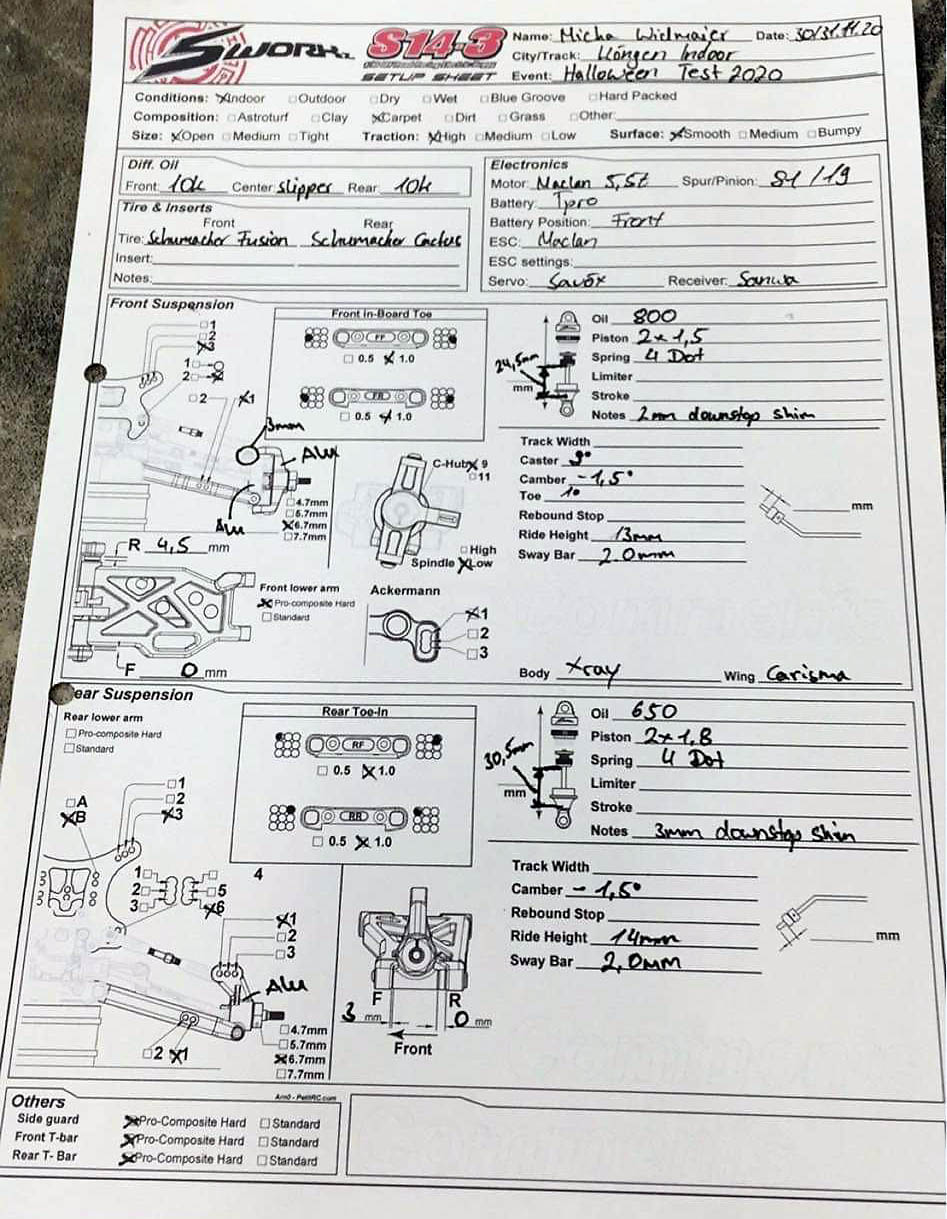 SWORKz S14-3 SETUP SHEET
Name: Micha Widmaier Date: 30/31.11.20
City/Track: Indoor
Event: Halloween Test 2020
Conditions: ☒Indoor □Outdoor □Dry □Wet □Blue Groove □Hard Packed
Composition: □Astroturf □Clay ☒Carpet □Dirt □Grass □Other:
Size: ☒Open □Medium □Tight Traction: ☒High □Medium □Low Surface: ☒Smooth □Medium □Bumpy
Diff. Oil
Front: 10k Center: slipper Rear: 10k
Tire & Inserts
Front Rear
Tire: Schumacher Fusion Schumacher Cactus
Insert:
Notes:
Electronics
Motor: Maclan 5,5t Spur/Pinion: 81/19
Battery: Tpro
Battery Position: Front
ESC: Maclan
ESC settings:
Servo: Savöx Receiver: Sanwa
Front Suspension
□1
□2
☒3
1□
2☒
□2 ☒1
3mm
Alu
Alu
□4.7mm
□5.7mm
☒6.7mm
□7.7mm
Front In-Board Toe
FF
□ 0.5 ☒ 1.0
FR
□ 0.5 ☒ 1.0
C-Hub ☒ 9
□ 11
□ High
Spindle ☒ Low
R 4,5 mm
F 0 mm
Front lower arm
☒ Pro-composite Hard
□ Standard
Ackermann
☒1
□2
□3
24,5mm
mm
Oil 800
Piston 2x1,5
Spring 4 Dot
Limiter
Stroke
Notes 2mm downstop shim
Track Width
Caster 9°
Camber -1,5°
Toe 1°
Rebound Stop
Ride Height 13mm
Sway Bar 2.0mm
mm
Body Xray Wing Carisma
Rear Suspension
Rear lower arm
□ Pro-composite Hard
□ Standard
□A
☒B
□1
□2
☒3
1□ □ 4
2□ □5
3□ ☒6
☒1
□2
□3
Alu
□2 ☒1
□4.7mm
□5.7mm
☒6.7mm
□7.7mm
Rear Toe-In
RF
□ 0.5 ☒ 1.0
RR
□ 0.5 ☒ 1.0
F R
3 mm 0 mm
Front
30,5mm
mm
Oil 650
Piston 2x1,8
Spring 4 Dot
Limiter
Stroke
Notes 3mm downstop shim
Track Width
Camber -1,5°
Rebound Stop
Ride Height 14mm
Sway Bar 2,0mm
mm
Others
Arno - PetitRC.com
Side guard ☒Pro-Composite Hard □Standard
Front T-bar ☒Pro-Composite Hard □Standard
Rear T- Bar ☒Pro-Composite Hard □Standard